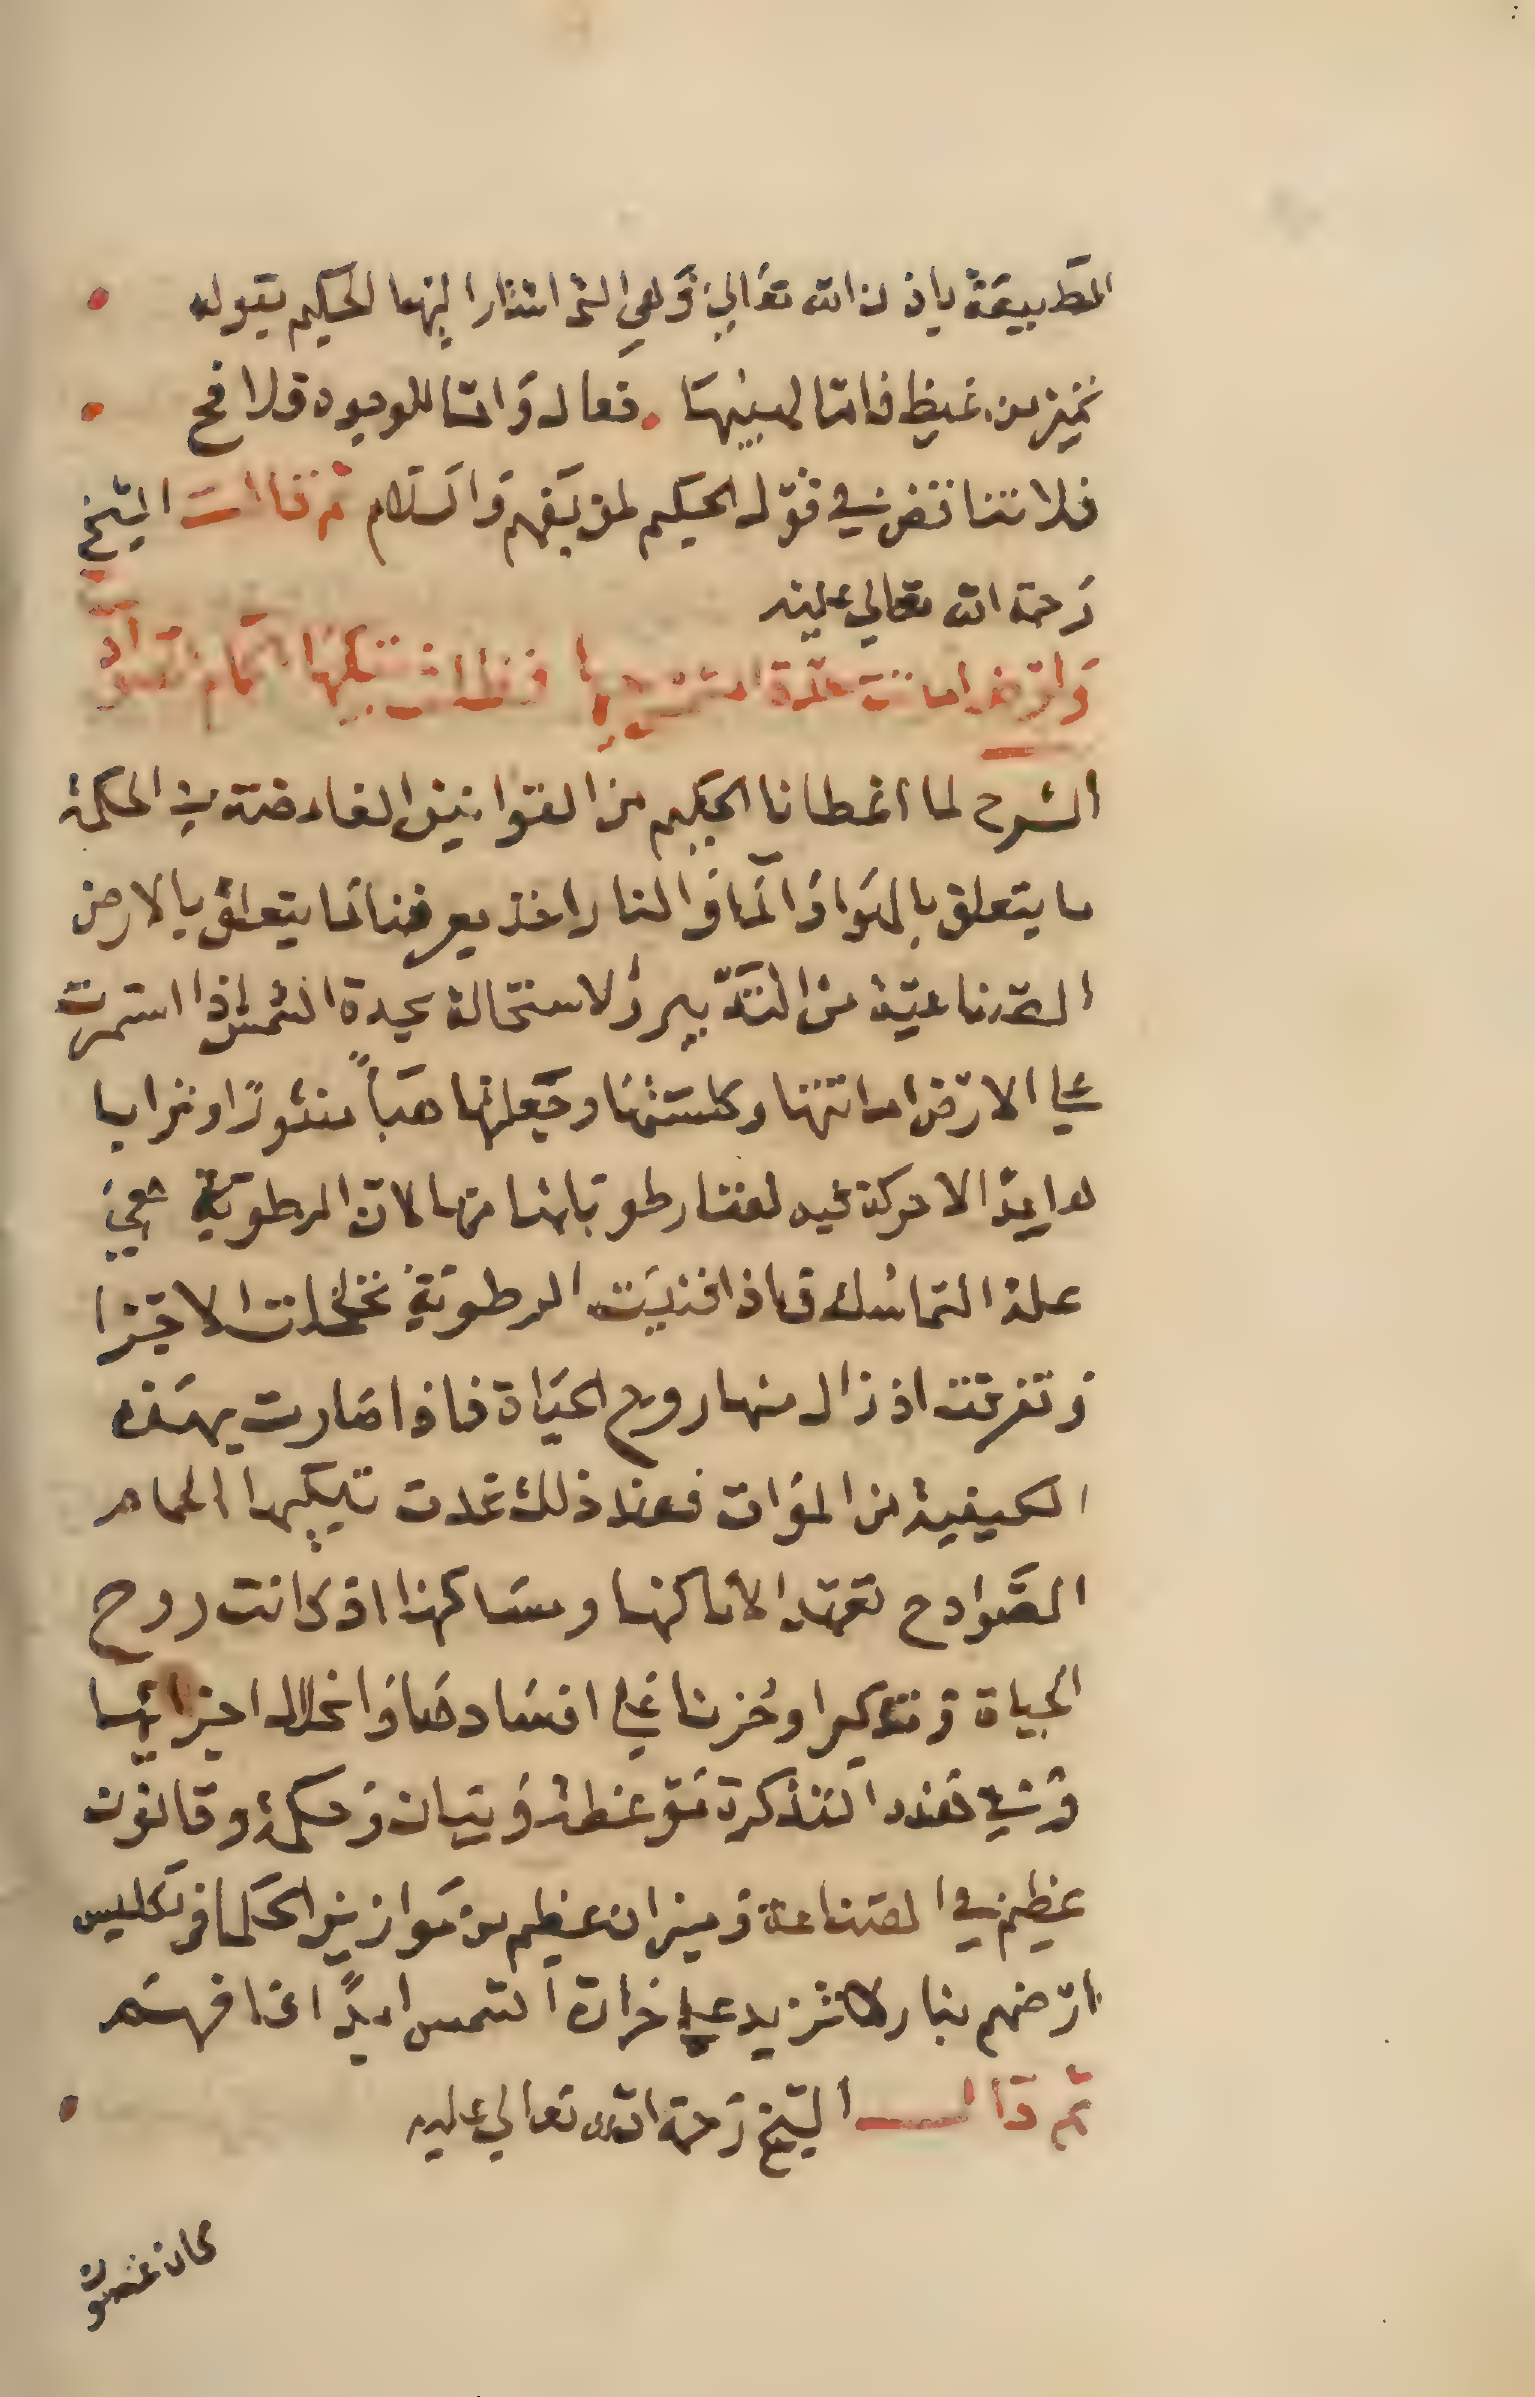 الطبيعة باذن الله تعالي وهي التي اشار اليها الحكيم بقوله
تميز من غيظ فاما لهيبها . فعال واما للوجود فلافح
فلا تناقض في قول الحكيم لمن يفهم والسلام ثم قال الشيخ
رحمة الله تعالي عليه
وارض اماتت شدة الشمس فظلت تبكيها الحمام
الشرح لما اعطانا الحكيم من القوانين الغامضة في الحكمة
ما يتعلق بالهوا والما والنار اخذ يعرفنا ما يتعلق بالارض
الصناعية من التدبير والاستحالة بحدة الشمس اذا استمرت
علي الارض اماتتها وكلستها وجعلتها هبأ منثورا وترابا
هامدا لا حركة فيه لفنا رطوباتها منها لان الرطوبة هي
علة التماسك فاذا فنيت الرطوبة تخلخلت الاجزا
وتفرقت اذ زال منها روح الحياة فاذا صارت بهذه
الكيفية من الموات فعند ذلك غدت تبكيها الحمام
الصوادح تعهدا لاماكنها ومساكنها اذ كانت روح
الحياة وتذكيرا وحزنا علي افسادها وانحلال اجزائها
وفي هذه التذكرة موعظة وبيان وحكمة وقانون
عظيم في الصناعة وميزان عظيم من موازين الحكما في تكليس
ارضهم بنار لا تزيد علي حرارة الشمس ابدا فافهم
ثم قال الشيخ رحمة الله تعالي عليه
كان غصون